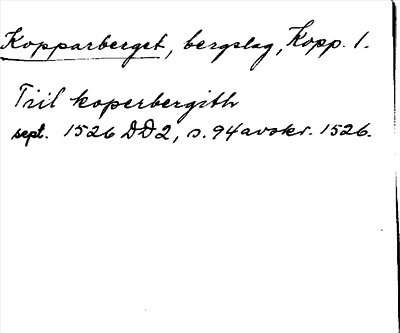 Kopparberget, bergslag, Kopp. l.
Tiil koperbergith
sept. 1526 DD2, s. 94 avskr. 1526.